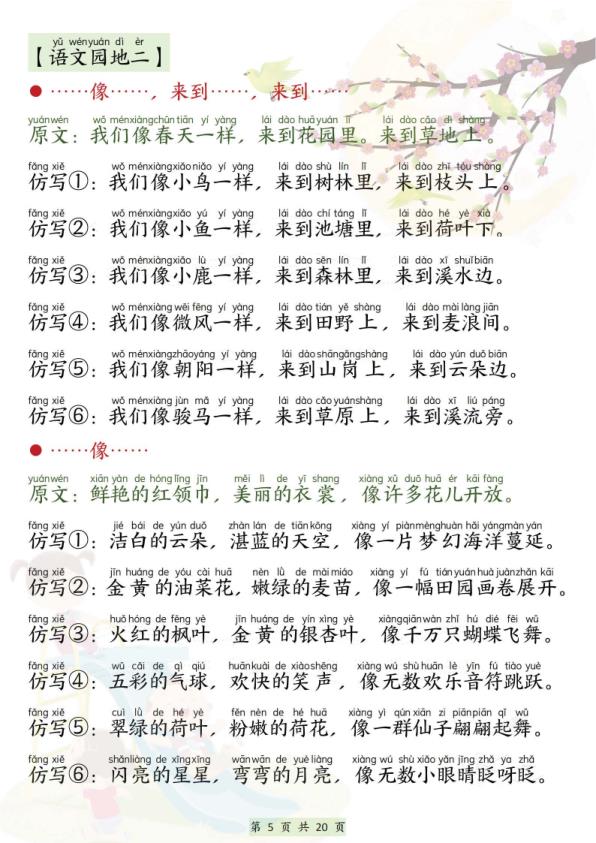 yǔ wényuán dì èr
【语文园地二】
●……像……，来到……，来到……
yuánwén wǒ ménxiàngchūntiān yí yàng lái dào huā yuán lǐ lái dào cǎo dì shàng
原文：我们像春天一样，来到花园里。来到草地上。
fǎng xiě wǒ ménxiàngxiǎoniǎo yí yàng lái dào shù lín lǐ lái dào zhī tóu shàng
仿写①：我们像小鸟一样，来到树林里，来到枝头上。
fǎng xiě wǒ ménxiàngxiǎo yú yí yàng lái dào chí táng lǐ lái dào hé yè xià
仿写②：我们像小鱼一样，来到池塘里，来到荷叶下。
fǎng xiě wǒ ménxiàngxiǎo lù yí yàng lái dào sēn lín lǐ lái dào xī shuǐ biān
仿写③：我们像小鹿一样，来到森林里，来到溪水边。
fǎng xiě wǒ ménxiàng wēi fēng yí yàng lái dào tián yě shàng lái dào mài làng jiān
仿写④：我们像微风一样，来到田野上，来到麦浪间。
fǎng xiě wǒ ménxiàngzhāoyáng yí yàng lái dào shāngǎngshàng lái dào yún duǒ biān
仿写⑤：我们像朝阳一样，来到山岗上，来到云朵边。
fǎng xiě wǒ ménxiàng jùn mǎ yí yàng lái dào cǎo yuánshàng lái dào xī liú páng
仿写⑥：我们像骏马一样，来到草原上，来到溪流旁。
●……像……
yuánwén xiān yàn de hóng lǐng jīn měi lì de yī shang xiàng xǔ duō huā ér kāi fàng
原文：鲜艳的红领巾，美丽的衣裳，像许多花儿开放。
fǎng xiě jié bái de yún duǒ zhàn lán de tiān kōng xiàng yí piànmènghuàn hǎi yángmàn yán
仿写①：洁白的云朵，湛蓝的天空，像一片梦幻海洋蔓延。
fǎng xiě jīn huáng de yóu cài huā nèn lǜ de mài miáo xiàng yì fú tián yuánhuà juànzhǎn kāi
仿写②：金黄的油菜花，嫩绿的麦苗，像一幅田园画卷展开。
fǎng xiě huǒ hóng de fēng yè jīn huáng de yín xìng yè xiàngqiānwàn zhī hú dié fēi wǔ
仿写③：火红的枫叶，金黄的银杏叶，像千万只蝴蝶飞舞。
fǎng xiě wǔ cǎi de qì qiú huānkuài de xiàoshēng xiàng wú shù huān lè yīn fú tiào yuè
仿写④：五彩的气球，欢快的笑声，像无数欢乐音符跳跃。
fǎng xiě cuì lǜ de hé yè fěn nèn de hé huā xiàng yì qún xiān zi piānpiān qǐ wǔ
仿写⑤：翠绿的荷叶，粉嫩的荷花，像一群仙子翩翩起舞。
fǎng xiě shǎnliàng de xīngxing wānwān de yuè liàng xiàng wú shù xiǎo yǎn jīng zhǎ ya zhǎ
仿写⑥：闪亮的星星，弯弯的月亮，像无数小眼睛眨呀眨。
第 5 页 共 20 页